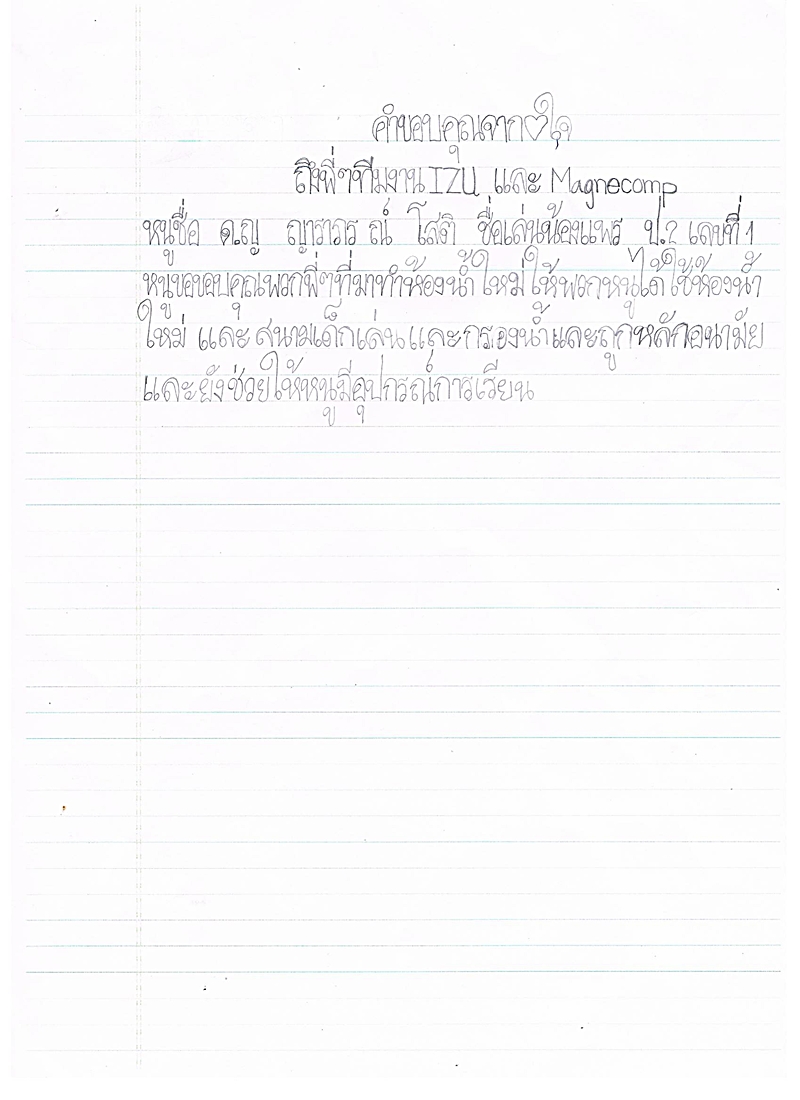 คำขอบคุณจาก♡ใจ
ถึงพี่ๆทีมงาน IZU และ Magnecomp
หนูชื่อ ด.ญ ญาราภร ณ์ โสติ ชื่อเล่นน้องแพร ป.2 เลขที่ 1
หนูขอขอบคุณพวกพี่ๆที่มาทำห้องน้ำใหม่ ให้พวกหนูได้ใช้ห้องน้ำ
ใหม่ และ สนามเด็กเล่นและกรองน้ำและถูกหลักอนามัย
และยังช่วยให้หนูมีอุปกรณ์การเรียน